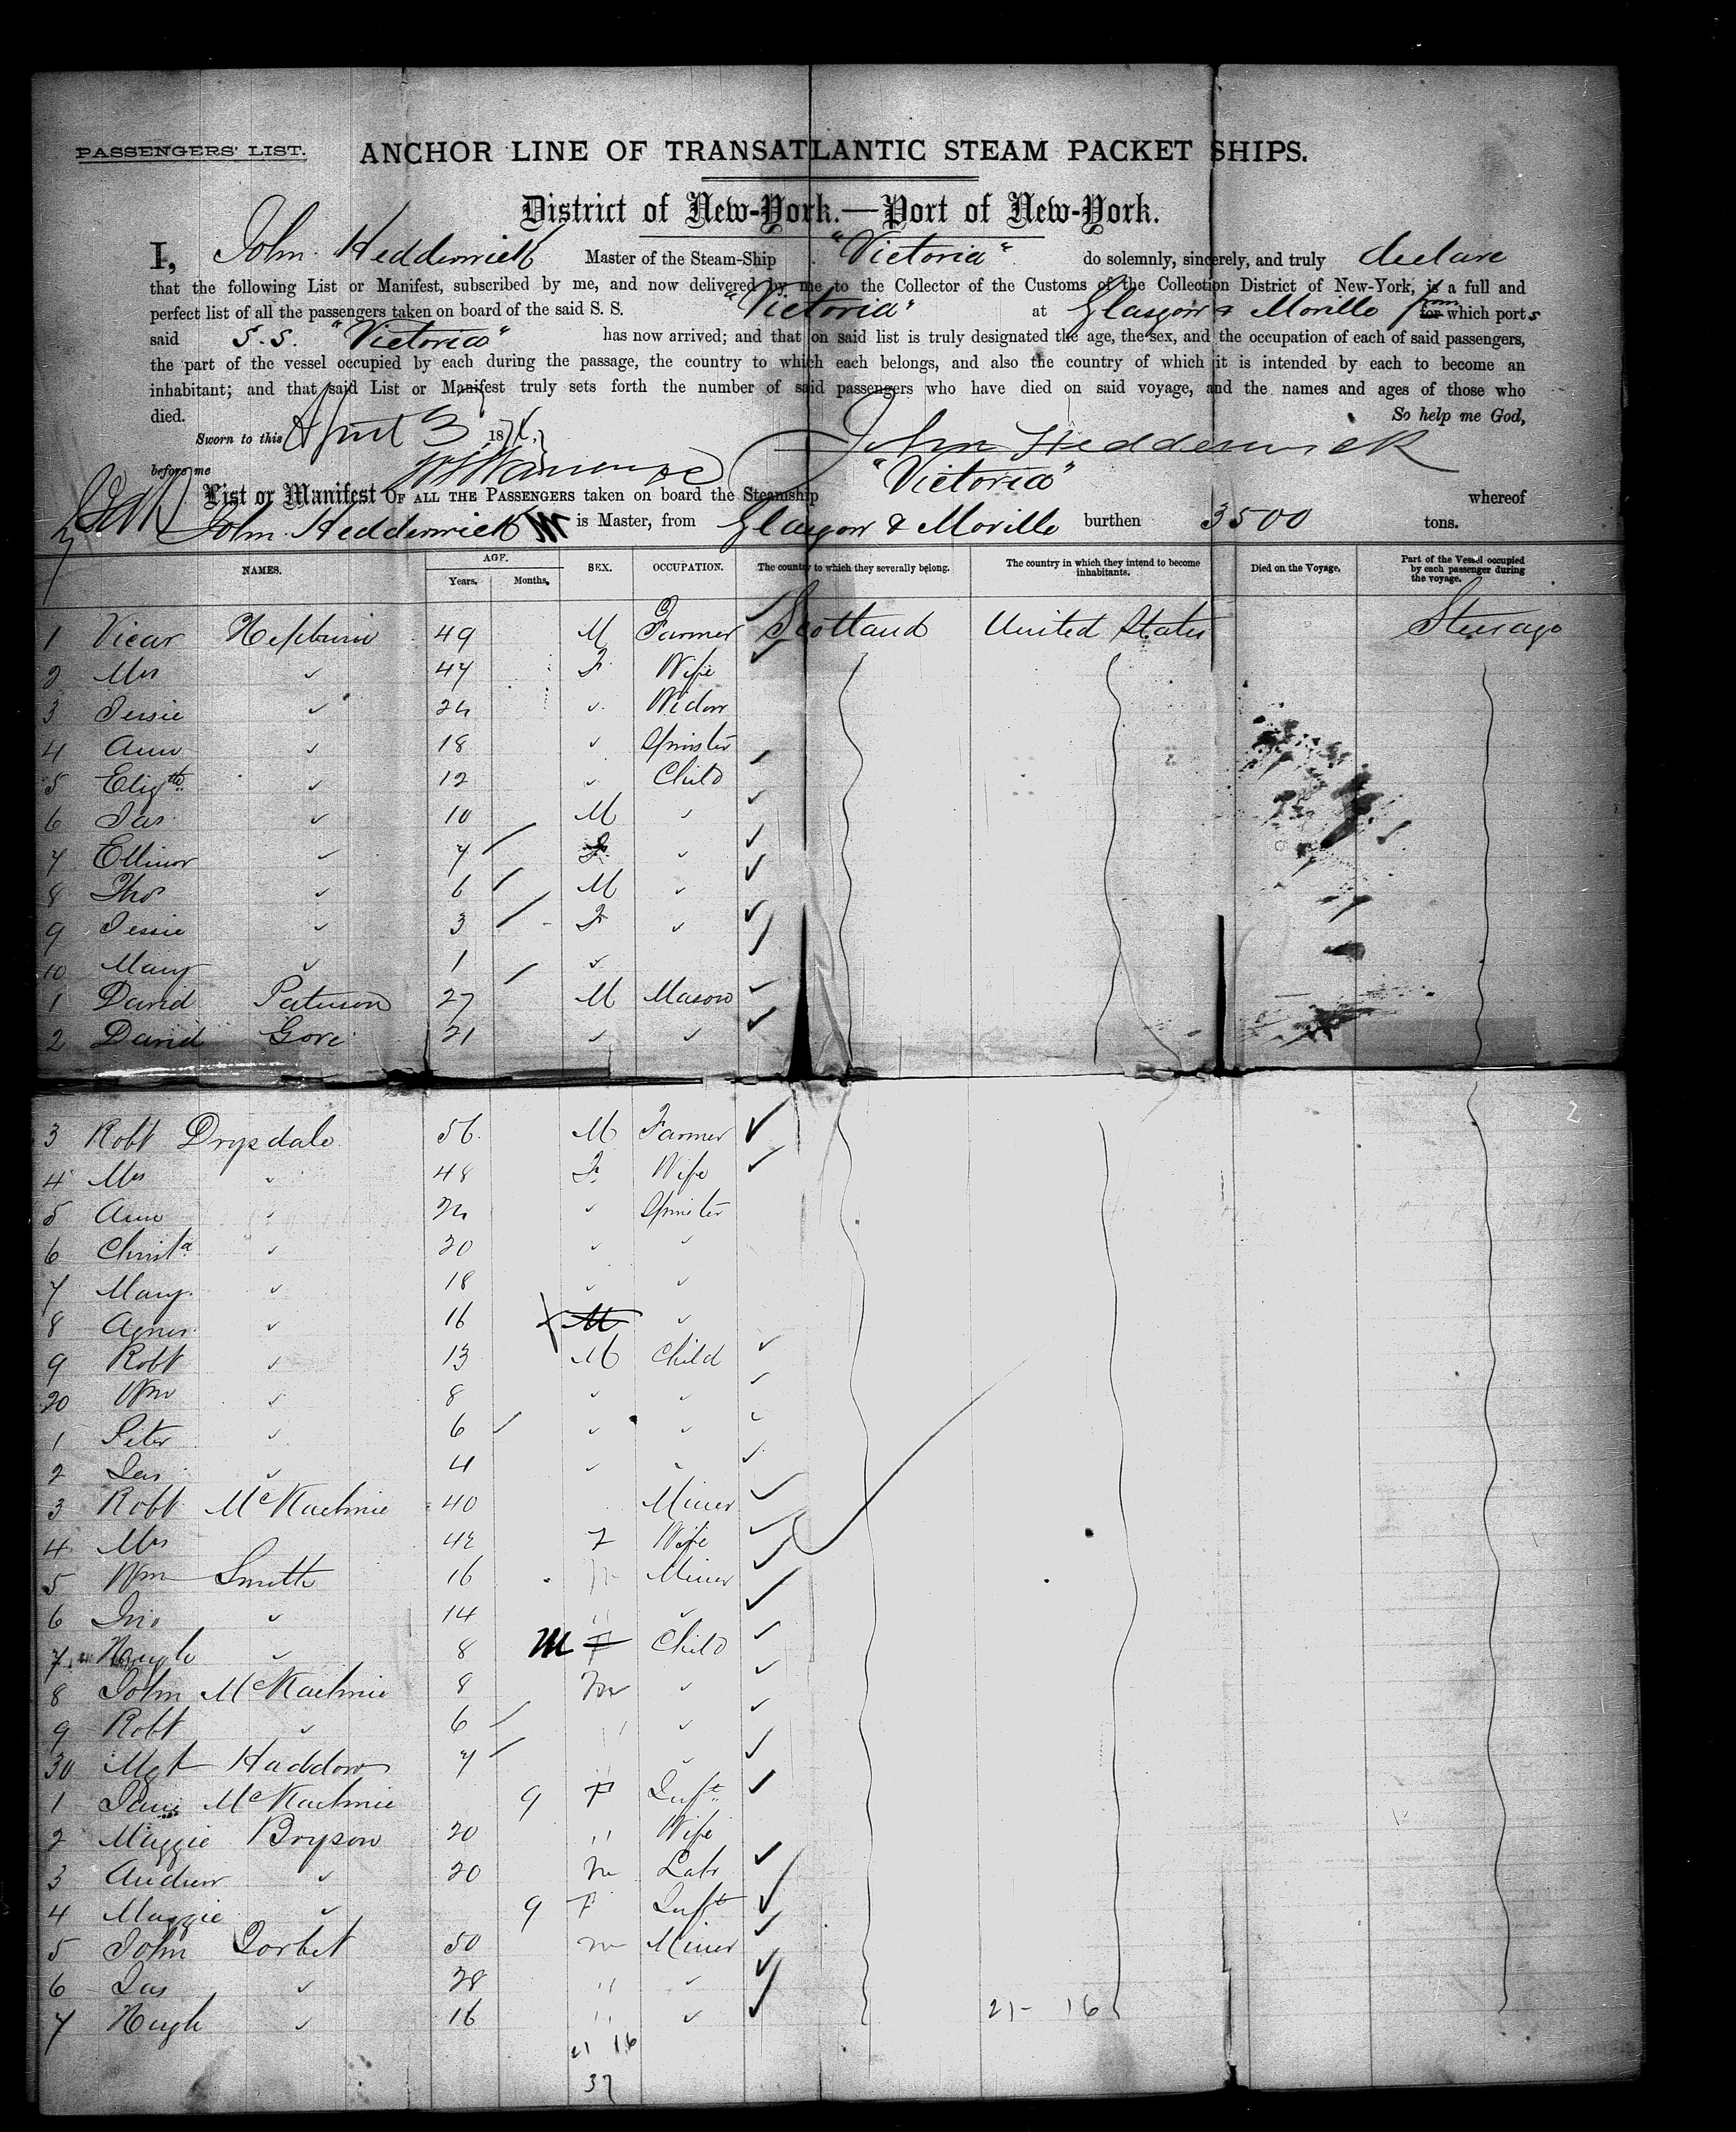 PASSENGERS' LIST. ANCHOR LINE OF TRANSATLANTIC STEAM PACKET SHIPS.
District of New-York.—Port of New-York.
I, John Hedderwick Master of the Steam-Ship "Victoria" do solemnly, sincerely, and truly declare
that the following List or Manifest, subscribed by me, and now delivered by me to the Collector of the Customs of the Collection District of New-York, is a full and
perfect list of all the passengers taken on board of the said S. S. "Victoria" at Glasgow & Moville from for which ports
said S.S. "Victoria" has now arrived; and that on said list is truly designated the age, the sex, and the occupation of each of said passengers,
the part of the vessel occupied by each during the passage, the country to which each belongs, and also the country of which it is intended by each to become an
inhabitant; and that said List or Manifest truly sets forth the number of said passengers who have died on said voyage, and the names and ages of those who
died. So help me God,
Sworn to this April 3 187 John Hedderwick
before me
List or Manifest OF ALL THE PASSENGERS taken on board the Steamship "Victoria" whereof
John Hedderwick is Master, from Glasgow & Moville burthen 3500 tons.
NAMES. AGE. Years. Months. SEX. OCCUPATION. The country to which they severally belong. The country in which they intend to become inhabitants. Died on the Voyage. Part of the Vessel occupied by each passenger during the voyage.
1 Vicar Hepburn 49 M Farmer Scotland United States Steerage
2 Mrs " 47 F Wife
3 Jessie " 24 " Widow
4 Ann " 18 " Spinster
5 Elizth " 12 " Child
6 Jas " 10 M "
7 Ellinor " 7 F "
8 Thos " 6 M "
9 Jessie " 3 F "
10 Mary " 1 "
1 David Paterson 27 M Mason
2 David Gore 21 " "
3 Robt Drysdale 56 M Farmer
4 Mrs " 48 F Wife
5 Ann " 24 " Spinster
6 Christa " 20 " "
7 Mary " 18 " "
8 Agnes " 16 M "
9 Robt " 13 M Child
20 Wm " 8 " "
1 Peter " 6 " "
2 Jas " 4 " "
3 Robt McKachnie 40 Miner
4 Mrs 42 F Wife
5 Wm Smith 16 Miner
6 Jno " 14 " "
7 Hugh " 8 M F Child
8 John McKachnie 8 m "
9 Robt " 6 " "
30 Mgt Haddow 7 " "
1 Jane McKachnie 9 F Inft
2 Maggie Bryson 20 " Wife
3 Andrew " 20 m Labr
4 Maggie " 9 F Inft
5 John Torbet 50 m Miner
6 Jas " 28 " "
7 Hugh " 16 " " 21 - 16
21 16
37
2